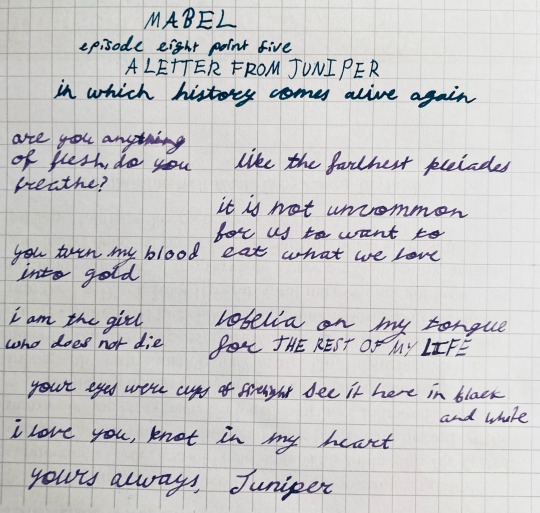 MABEL
episode eight point five
A LETTER FROM JUNIPER
in which history comes alive again
are you anything
of flesh, do you
breathe?
like the farthest pleiades
it is not uncommon
for us to want to
eat what we love
you turn my blood
into gold
i am the girl
who does not die
lobelia on my tongue
for THE REST OF MY LIFE
your eyes were cups of firelight
see it here in black
and white
i love you, knot in my heart
yours always, Juniper